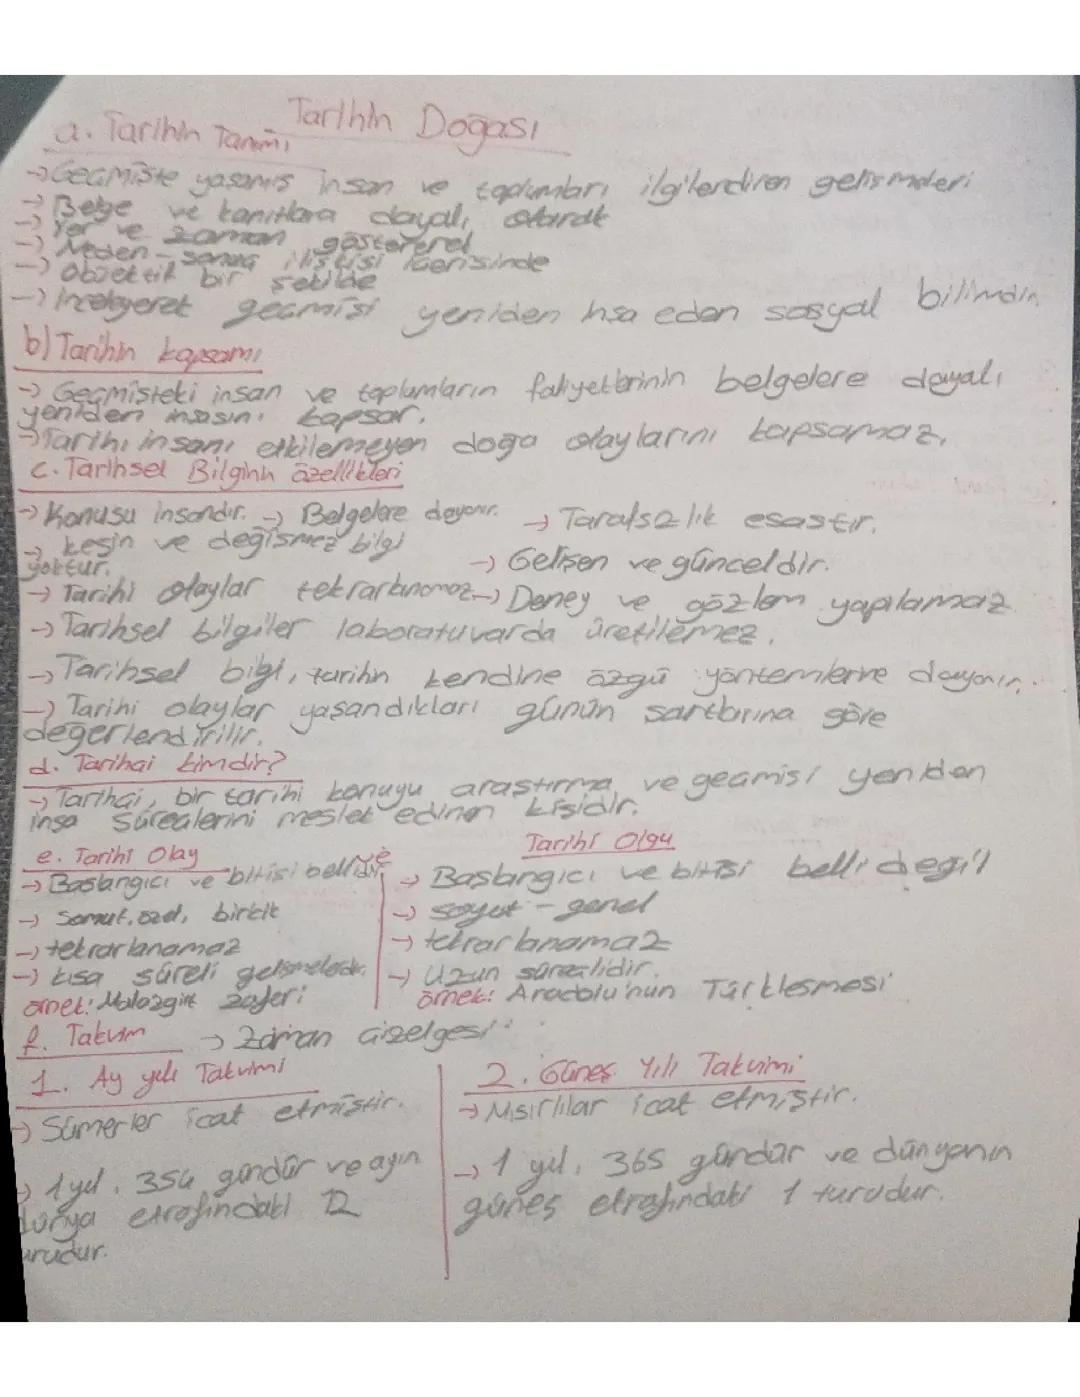 Tarihin Doğası
a. Tarihin Tanımı
→ Geçmişte yaşamış insan ve toplumları ilgilendiren gelişmeleri
→ Belge ve kanıtlara dayalı olarak
→ Yer ve zaman göstererek
→ Neden-sonuç ilişkisi içerisinde
→ Objektif bir şekilde
→ İnceleyerek geçmişi yeniden inşa eden sosyal bilimdir.
b) Tarihin kapsamı
→ Geçmişteki insan ve toplumların faliyetlerinin belgelere dayalı
yeniden inşasını kapsar.
→ Tarihi insanı etkilemeyen doğa olaylarını kapsamaz.
c. Tarihsel Bilginin özellikleri
→ Konusu insandır. → Belgelere dayanır. → Tarafsızlık esastır.
→ kesin ve değişmez bilgi
yoktur. → Gelişen ve günceldir.
→ Tarihi olaylar tekrarlanamaz → Deney ve gözlem yapılamaz
→ Tarihsel bilgiler laboratuvarda üretilemez.
→ Tarihsel bilgi, tarihin kendine özgü yöntemlerine dayanır.
→ Tarihi olaylar yaşandıkları günün şartlarına göre
değerlendirilir.
d. Tarihçi kimdir?
→ Tarihçi, bir tarihi konuyu araştırma ve geçmişi yeniden
inşa süreçlerini meslek edinen kişidir.
e. Tarihi Olay
→ Başlangıcı ve bitişi bellidir
→ Somut, özel, biricik
→ tekrarlanamaz
→ kısa süreli gelişmelerdir.
örnek: Malazgirt zaferi
Tarihi Olgu
→ Başlangıcı ve bitişi belli değil
→ soyut - genel
→ tekrarlanamaz
→ Uzun süreçlidir.
örnek: Anadolu'nun Türkleşmesi
f. Takvim → Zaman çizelgesi
1. Ay yılı Takvimi
→ Sümerler icat etmiştir.
→ 1 yıl, 354 gündür ve ayın
dünya etrafındaki 12
turudur.
2. Güneş Yılı Takvimi
→ Mısırlılar icat etmiştir.
→ 1 yıl, 365 gündür ve dünyanın
güneş etrafındaki 1 turudur.